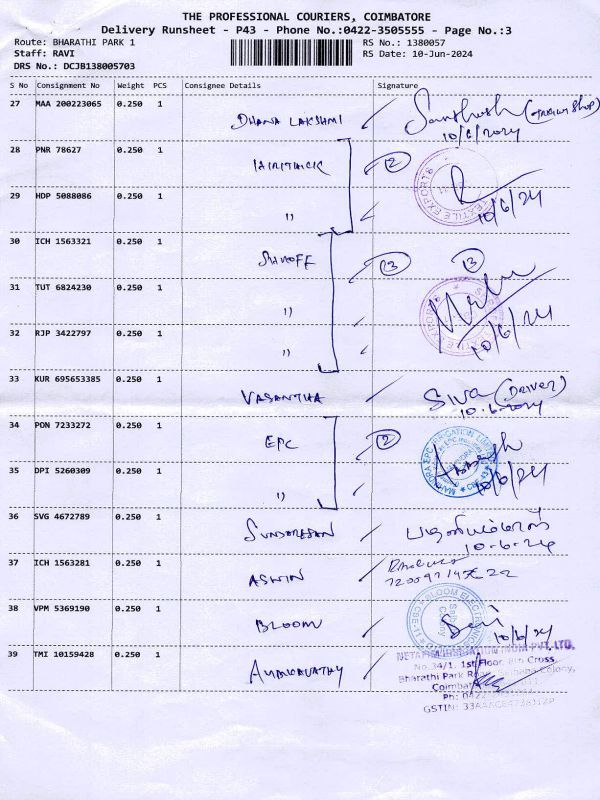 THE PROFESSIONAL COURIERS, COIMBATORE
Delivery Runsheet - P43 - Phone No.:0422-3505555 - Page No.:3
Route: BHARATHI PARK 1
RS No.: 1380057
Staff: RAVI
RS Date: 10-Jun-2024
DRS No.: DCJB138005703
S No Consignment No Weight PCS Consignee Details Signature
27 MAA 200223065 0.250 1 DHANA LAKSHMI Santhosh
10/6/2024
28 PNR 78627 0.250 1 2
29 HDP 5088086 0.250 1 " 10/6/24
TEXTILE EXPORTS
30 ICH 1563321 0.250 1 SHROFF 3 3
31 TUT 6824230 0.250 1 "
32 RJP 3422797 0.250 1 " 10/6/24
33 KUR 695653385 0.250 1 VASANTHA Siva (Driver)
10-6-2024
34 PON 7233272 0.250 1 EPC 2
MAHINDRA EPC IRRIGATION LIMITED
35 DPI 5260309 0.250 1 " 10/6/24
36 SVG 4672789 0.250 1 SUNDARESAN
10-6-24
37 ICH 1563281 0.250 1 ASWIN
38 VPM 5369190 0.250 1 BLOOM
BLOOM Saib Colony
10/6/24
39 TMI 10159428 0.250 1
PVT. LTD.
No.34/1, 1st Floor, 8th Cross,
Bharathi Park Road, Colony,
Ph: 0422
GSTIN: